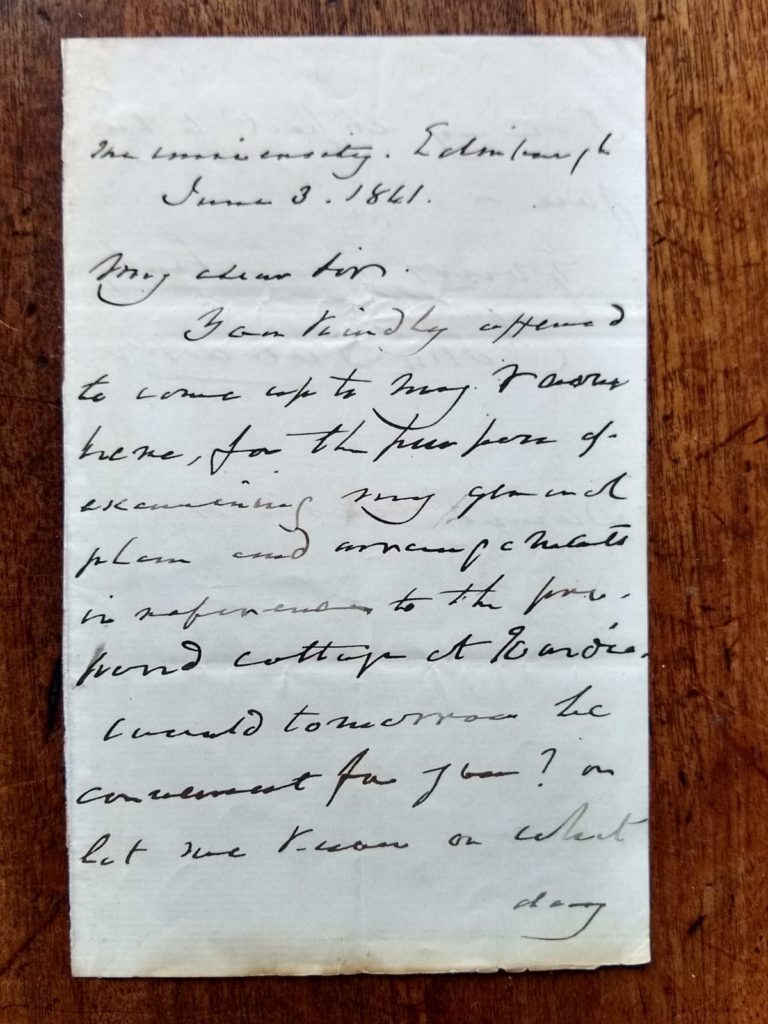 The University. Edinburgh
June 3. 1861.
My dear Sir.
You kindly offered
to come up to my room
here, for the purpose of
examining my ground
plan and arrangements
in reference to the pro-
posed cottage at
would tomorrow be
convenient for you? or
let me know on what
day